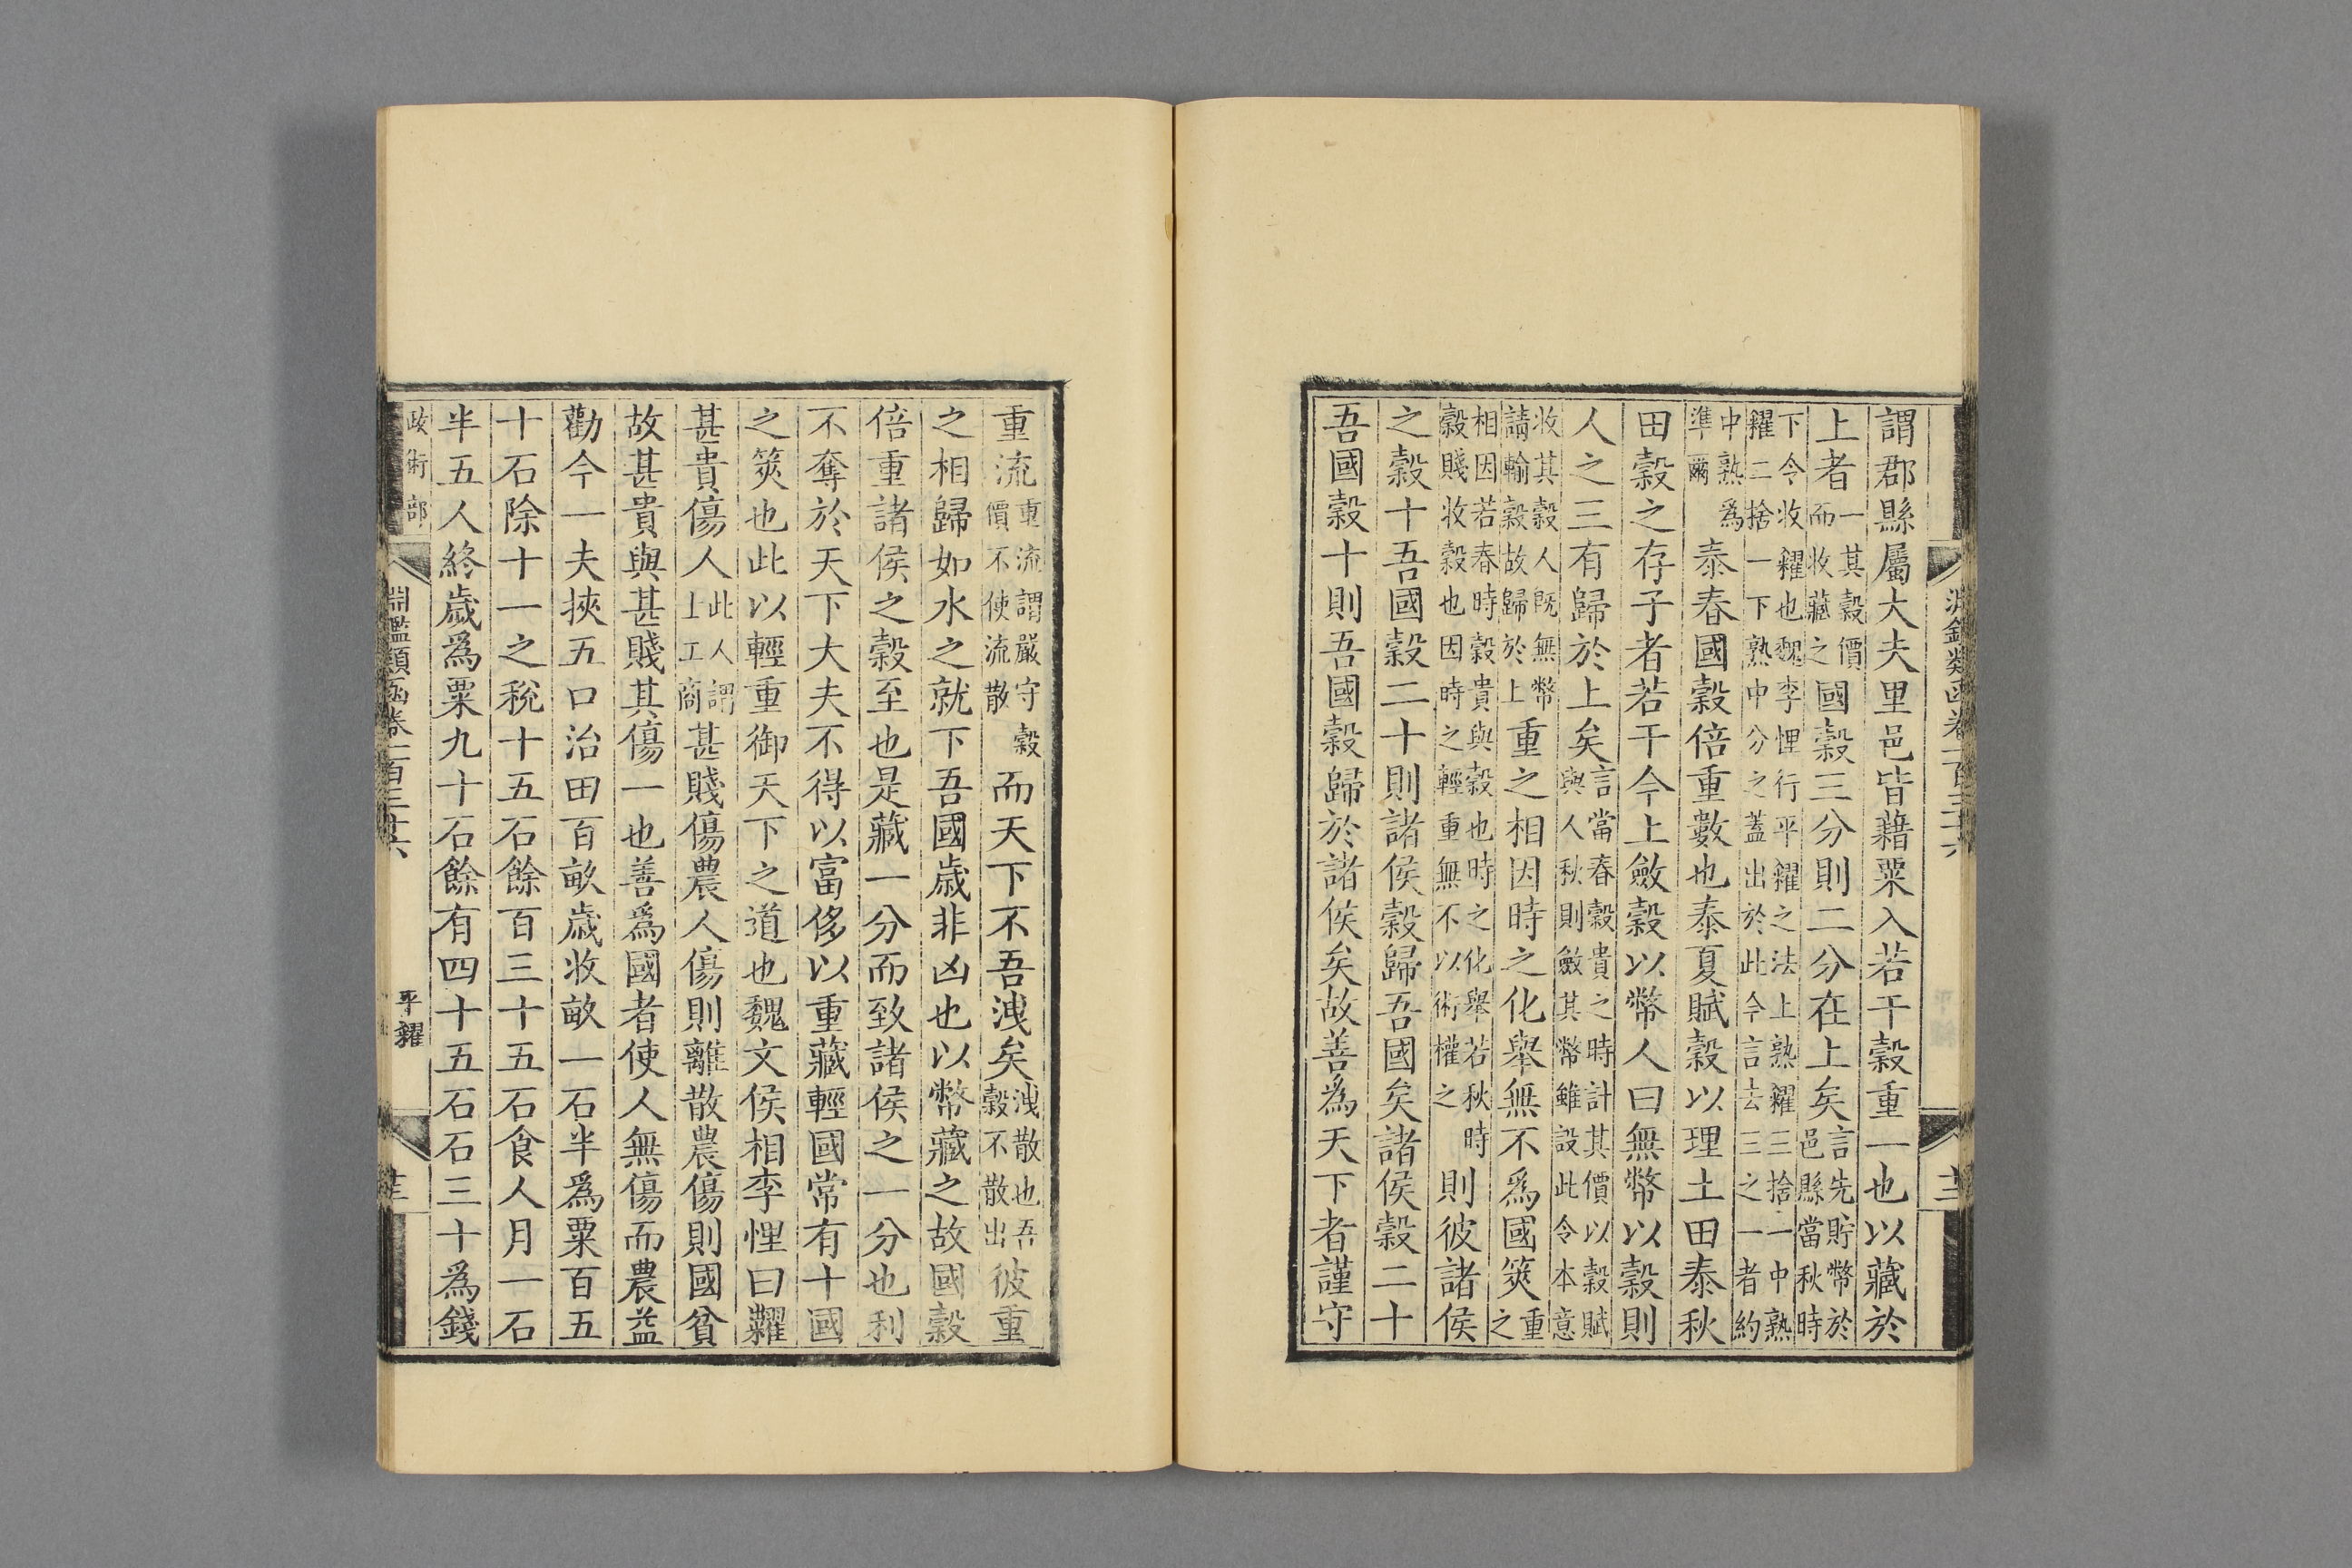 淵鑑類函卷一百三十六
謂郡縣屬大夫里邑皆藉粟入若干穀重一也以藏於
上者一其穀價而收藏之國穀三分則二分在上矣言先貯幣於邑縣當秋時
下令收糴也魏李悝行平糴之法上熟糴三捨一中熟糴二捨一下熟中分之蓋出於此今言去三之一者約
中熟爲準爾泰春國穀倍重數也泰夏賦穀以理土田泰秋
田穀之存子者若干今上斂穀以幣人曰無幣以穀則
人之三有歸於上矣言當春穀貴之時計其價以穀賦與人秋則斂其幣雖設此令本意
收其穀人既無幣請輸穀故歸於上重之相因時之化舉無不爲國筴重之
相因若春時穀貴與穀也時之化舉若秋時穀賤收穀也因時之輕重無不以術權之則彼諸侯
之穀十吾國穀二十則諸侯穀歸吾國矣諸侯穀二十
吾國穀十則吾國穀歸於諸侯矣故善爲天下者謹守
重流重流謂嚴守穀價不使流散而天下不吾洩矣洩散也吾穀不散出彼重
之相歸如水之就下吾國歲非凶也以幣藏之故國穀
倍重諸侯之穀至也是藏一分而致諸侯之一分也利
不奪於天下大夫不得以富侈以重藏輕國常有十國
之筴也此以輕重御天下之道也魏文侯相李悝曰糴
甚貴傷人此人謂士工商甚賤傷農人傷則離散農傷則國貧
故甚貴與甚賤其傷一也善爲國者使人無傷而農益
勸今一夫挾五口治田百畝歲收畝一石半爲粟百五
十石除十一之稅十五石餘百三十五石食人月一石
半五人終歲爲粟九十石餘有四十五石石三十爲錢
政術部 淵鑑類函卷一百三十六 平糴